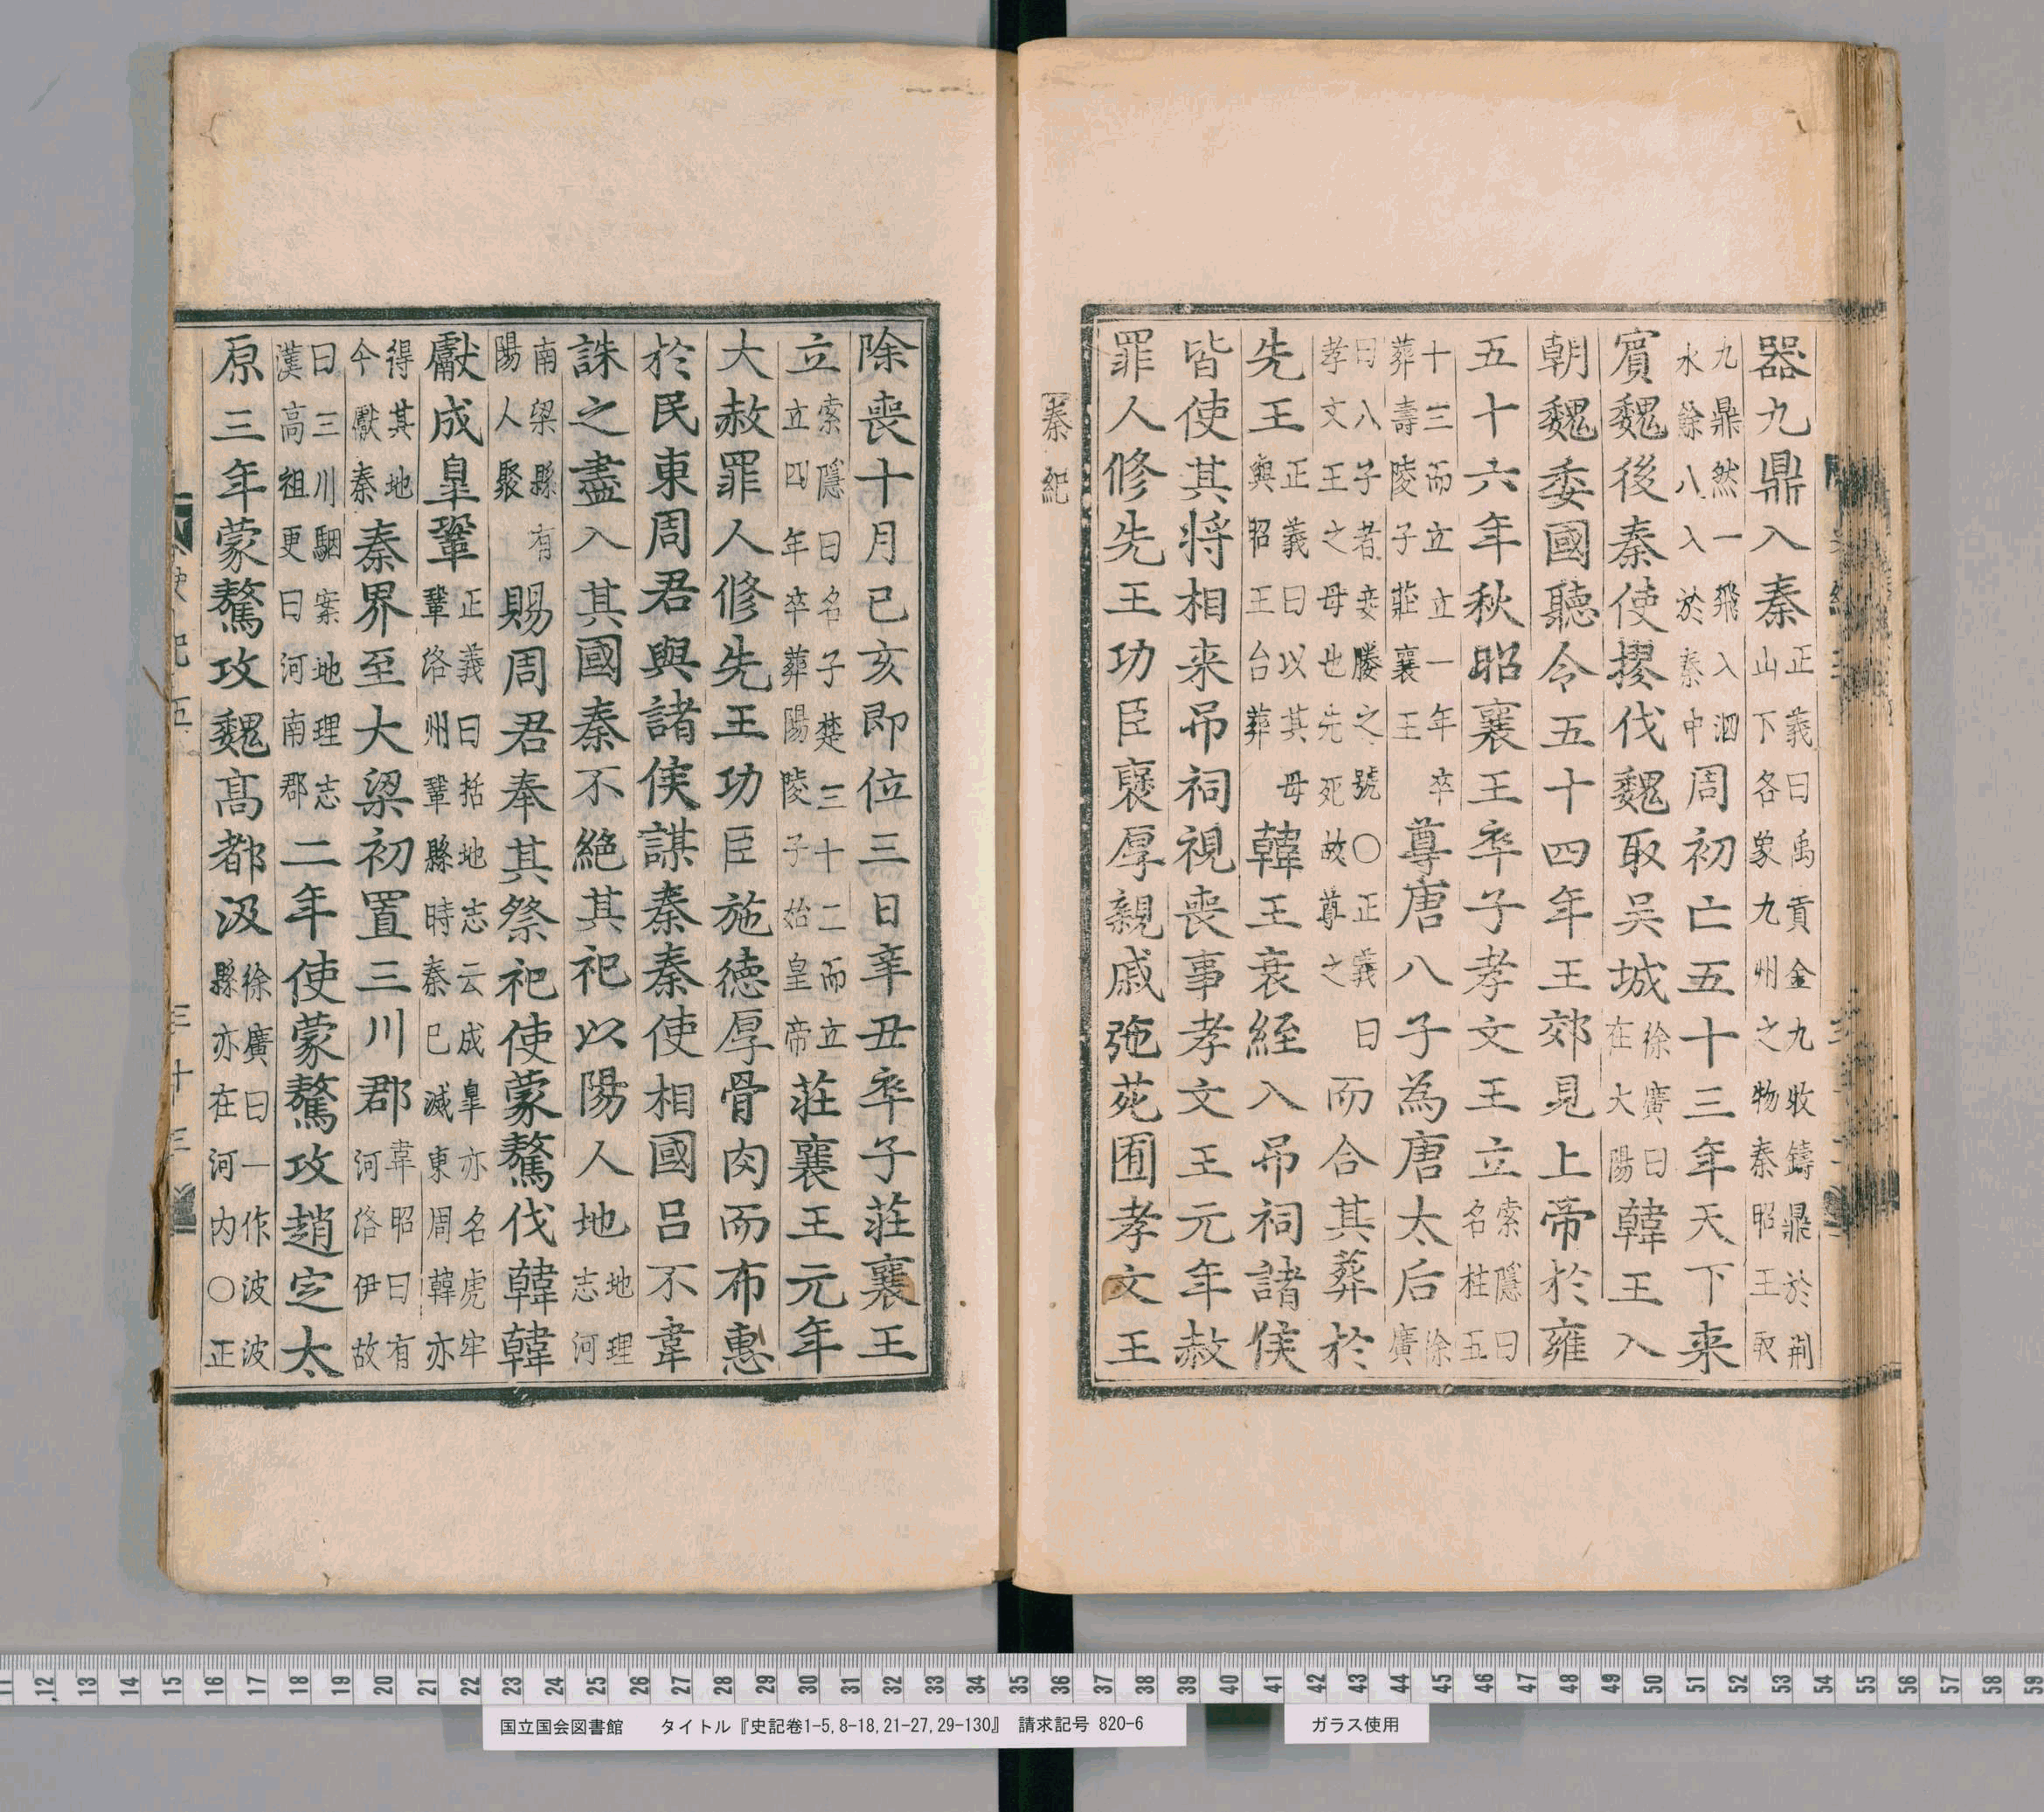 器九鼎入秦正義曰禹貢金九牧鑄鼎於荆山下各象九州之物秦昭王取
九鼎然一飛入泗水餘八入於秦中周初亡五十三年天下来
賔魏後秦使摎伐魏取吴城徐廣曰在大陽韓王入
朝魏委國聽令五十四年王郊見上帝於雍
五十六年秋昭襄王卒子孝文王立索隱曰名柱五
十三而立立一年卒葬壽陵子莊襄王尊唐八子為唐太后徐廣
曰八子者妾媵之號○正義曰孝文王之母也先死故尊之而合其葬於
先王正義曰以其母與昭王台葬韓王衰絰入弔祠諸侯
皆使其将相来弔祠視喪事孝文王元年赦
罪人修先王功臣褒厚親戚弛苑囿孝文王
秦紀
除喪十月己亥即位三日辛丑卒子莊襄王
立索隱曰名子楚三十二而立立四年卒葬陽陵子始皇帝莊襄王元年
大赦罪人修先王功臣施德厚骨肉而布惠
於民東周君與諸侯謀秦秦使相國吕不韋
誅之盡入其國秦不絶其祀以陽人地地理志河
南梁縣有陽人聚賜周君奉其祭祀使蒙驁伐韓韓
獻成皐鞏正義曰括地志云成臯亦名虎牢鞏洛州鞏縣時秦已滅東周韓亦
得其地今獻秦秦界至大梁初置三川郡韋昭曰有河洛伊故
曰三川駰案地理志漢高祖更曰河南郡二年使蒙驁攻趙定太
原三年蒙驁攻魏高都汲徐廣曰一作波波縣亦在河内○正
國立国会図書館 タイトル『史記卷1-5,8-18,21-27,29-130』 請求記号 820-6
ガラス使用